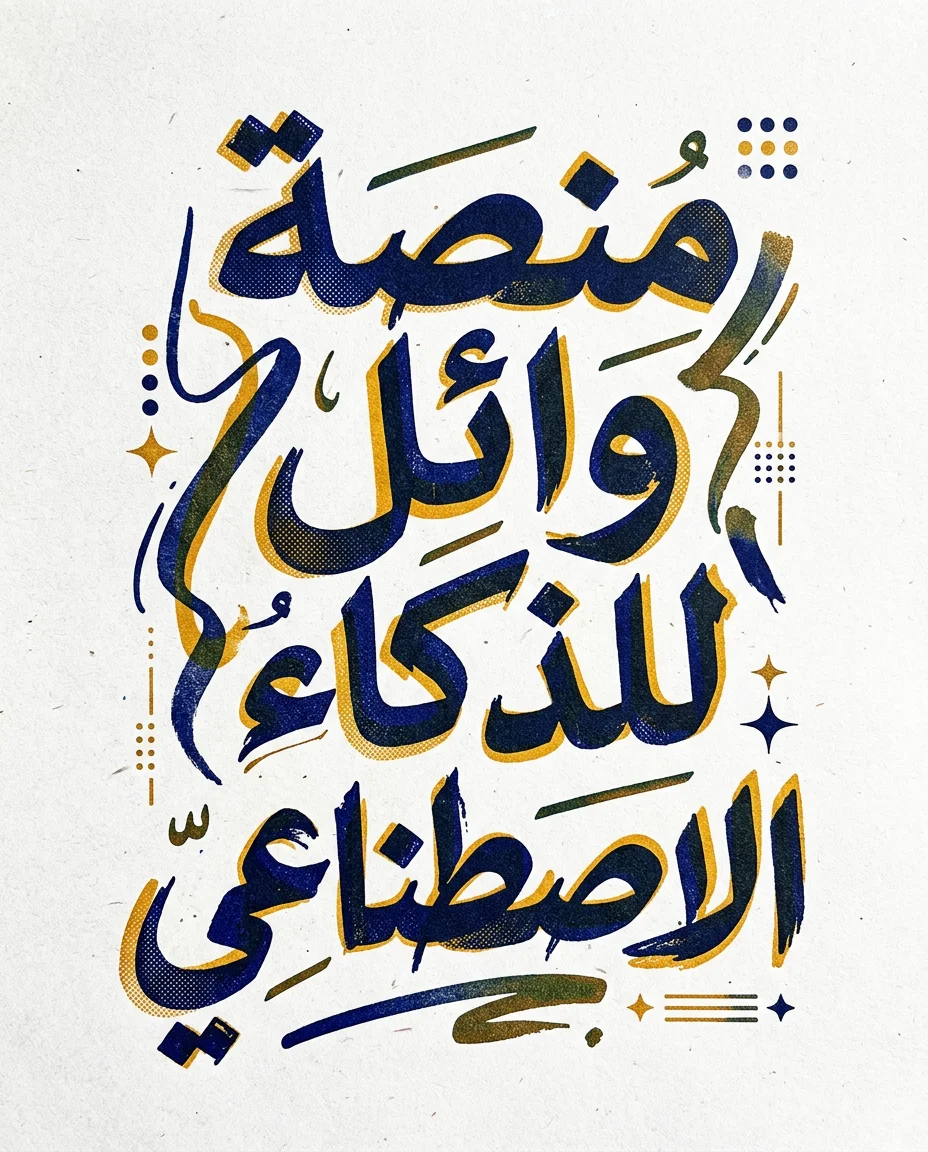 مُنصة
وائل
للذكاء
الاصطناعي